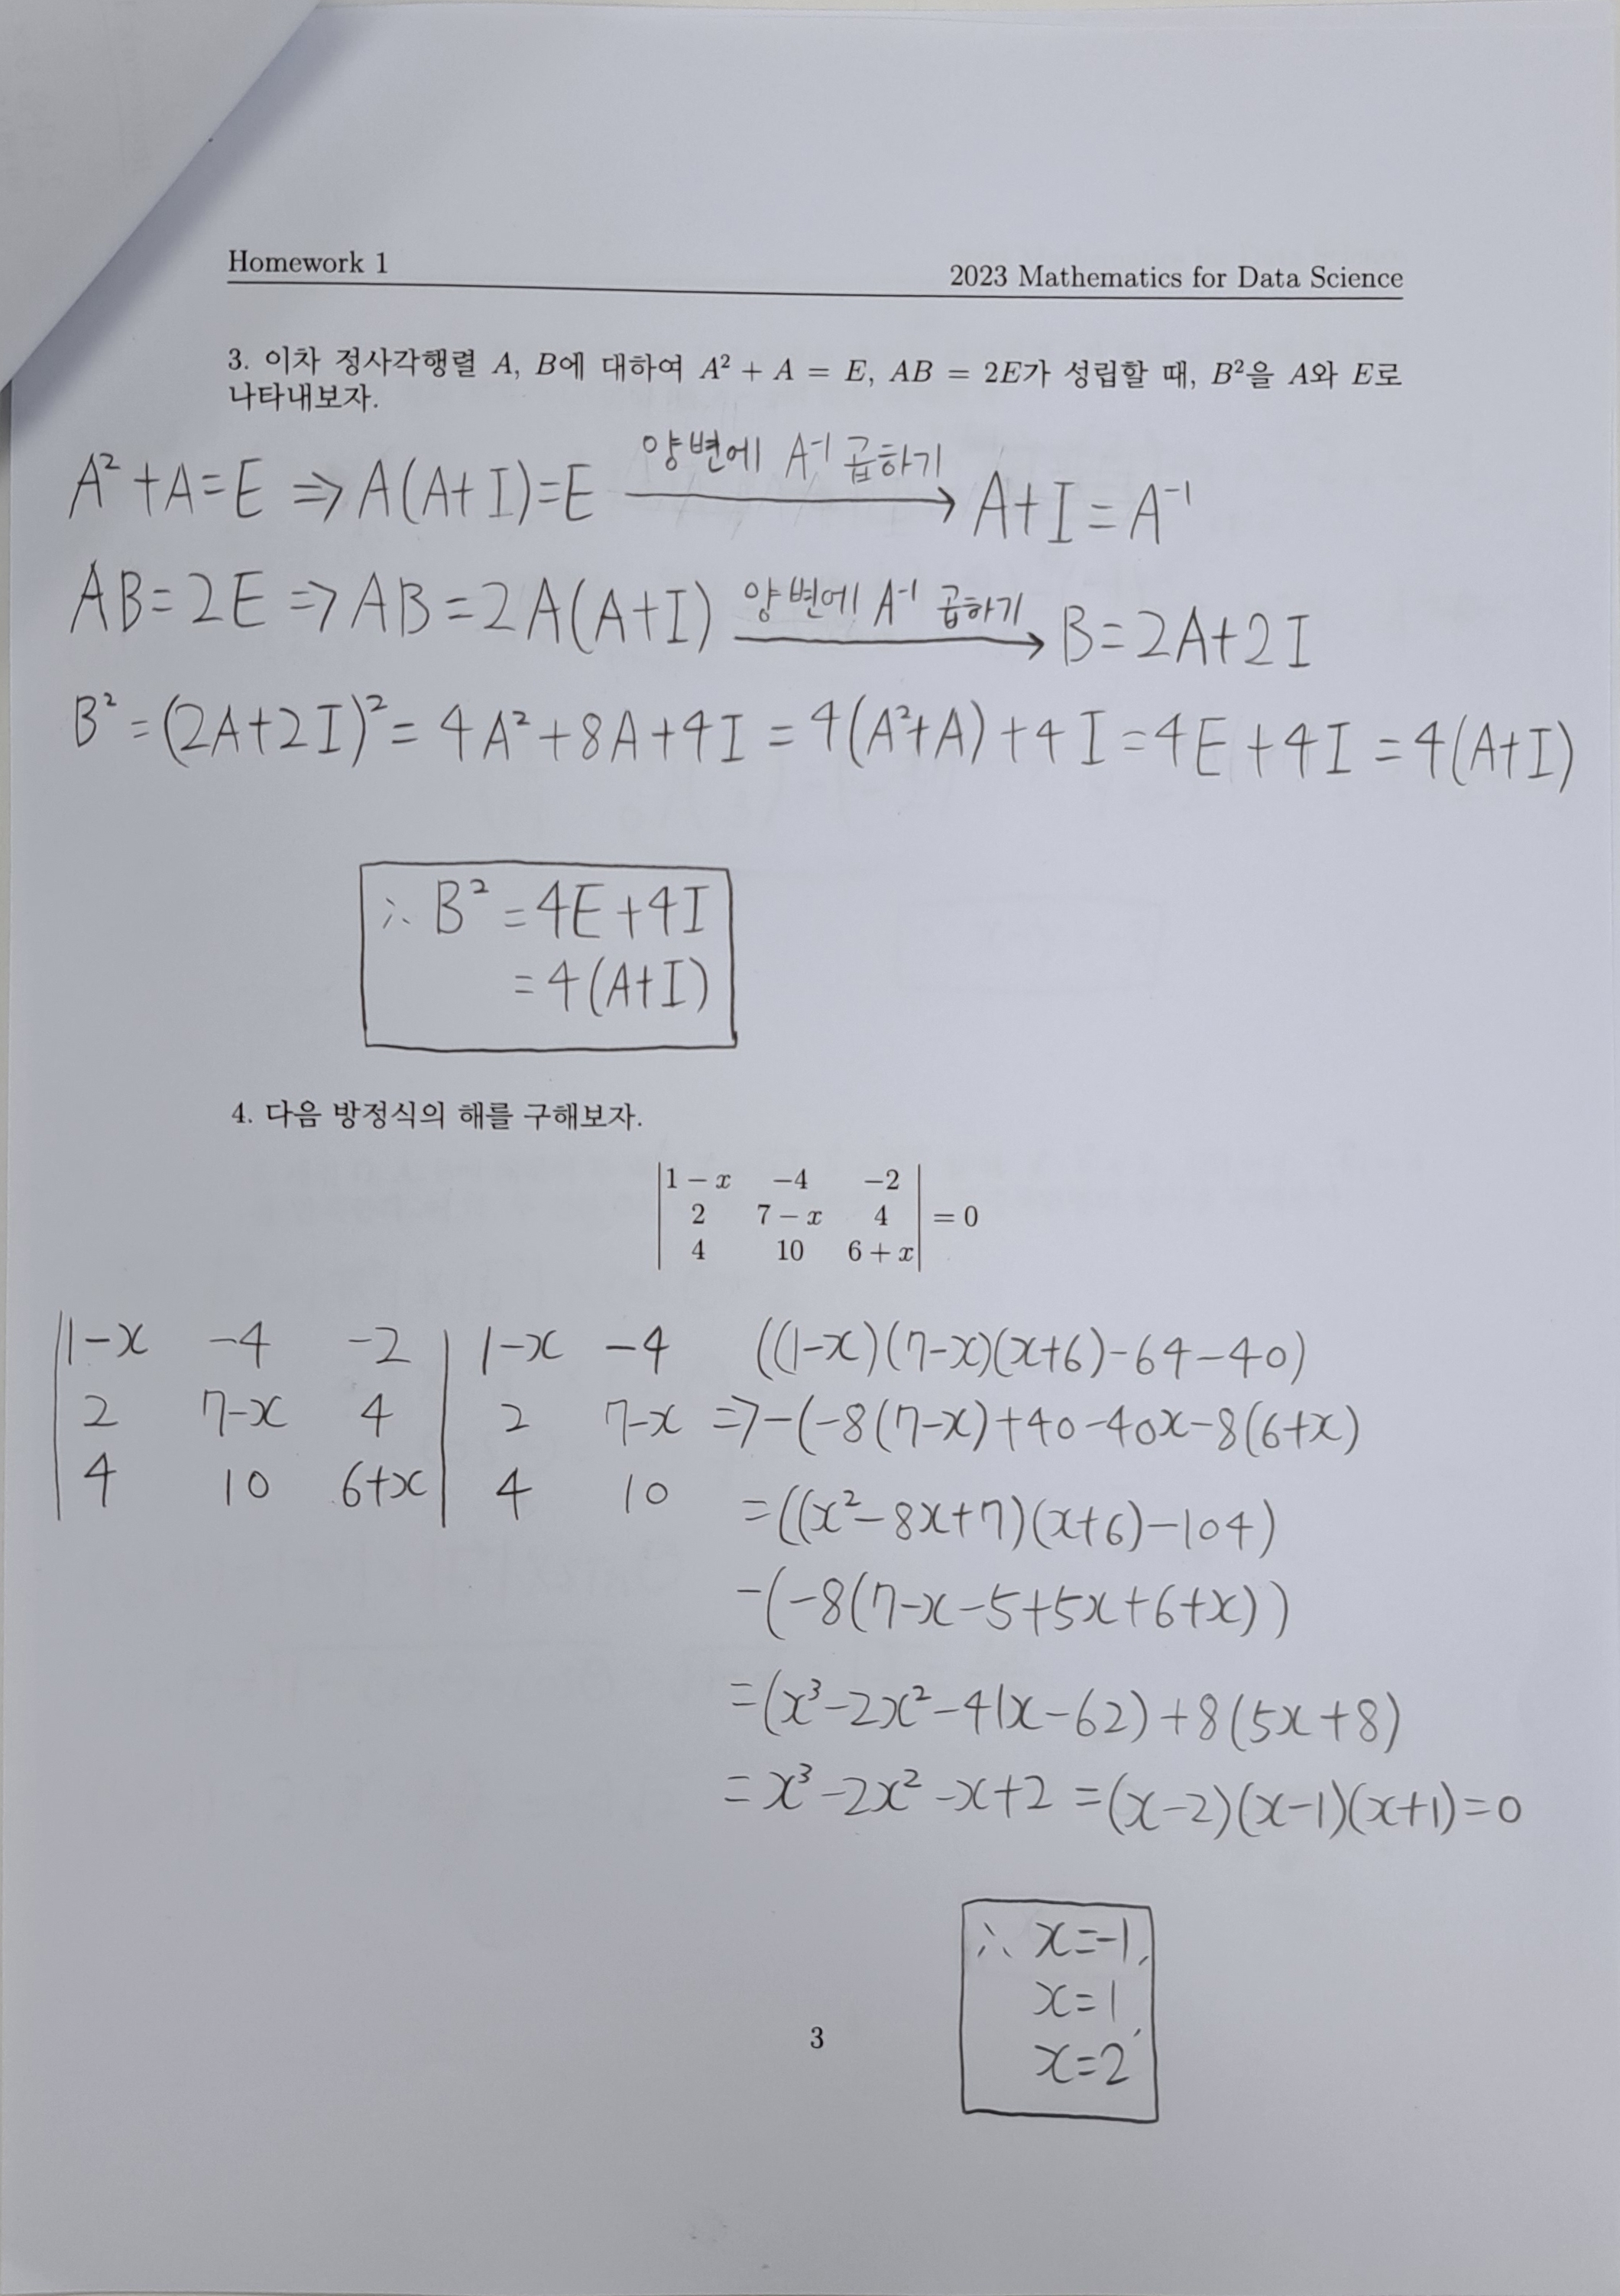 Homework 1
2023 Mathematics for Data Science
3. 이차 정사각행렬 A, B에 대하여 A² + A = E, AB = 2E가 성립할 때, B²을 A와 E로
나타내보자.
A²+A=E ⇒ A(A+I)=E 양변에 A⁻¹ 곱하기 → A+I=A⁻¹
AB=2E ⇒ AB=2A(A+I) 양변에 A⁻¹ 곱하기 → B=2A+2I
B²=(2A+2I)²=4A²+8A+4I=4(A²+A)+4I=4E+4I=4(A+I)
∴ B²=4E+4I
=4(A+I)
4. 다음 방정식의 해를 구해보자.
|1 − x −4 −2|
|2 7 − x 4| = 0
|4 10 6 + x|
|1-x -4 -2| 1-x -4 ((1-x)(7-x)(x+6)-64-40)
|2 7-x 4| 2 7-x ⇒-(-8(7-x)+40-40x-8(6+x)
|4 10 6+x| 4 10
=((x²-8x+7)(x+6)-104)
-(-8(7-x-5+5x+6+x))
=(x³-2x²-41x-62)+8(5x+8)
=x³-2x²-x+2=(x-2)(x-1)(x+1)=0
∴ x=-1,
x=1,
x=2
3